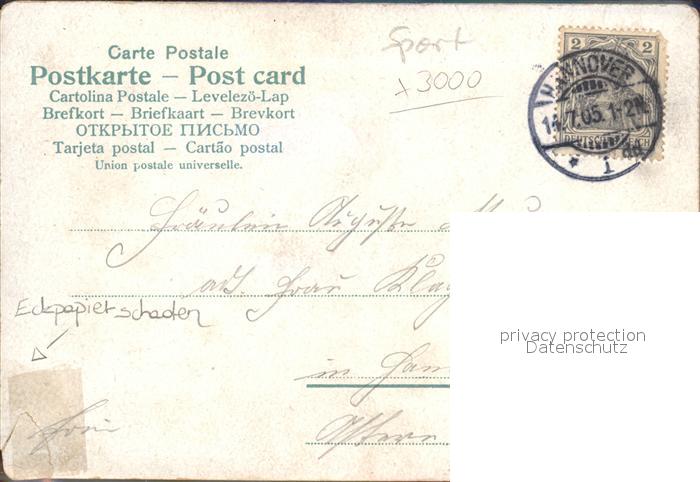 Carte Postale
Postkarte – Post card
Cartolina Postale – Levelező-Lap
Brefkort – Briefkaart – Brevkort
ОТКРЫТОЕ ПИСЬМО
Tarjeta postal – Cartão postal
Union postale universelle.
Sport
3000
2 2
HANNOVER
7.05.1-2N.
1
Fräulein Auguste
adr. Frau
in
Eckpapierschaden
privacy protection
Datenschutz